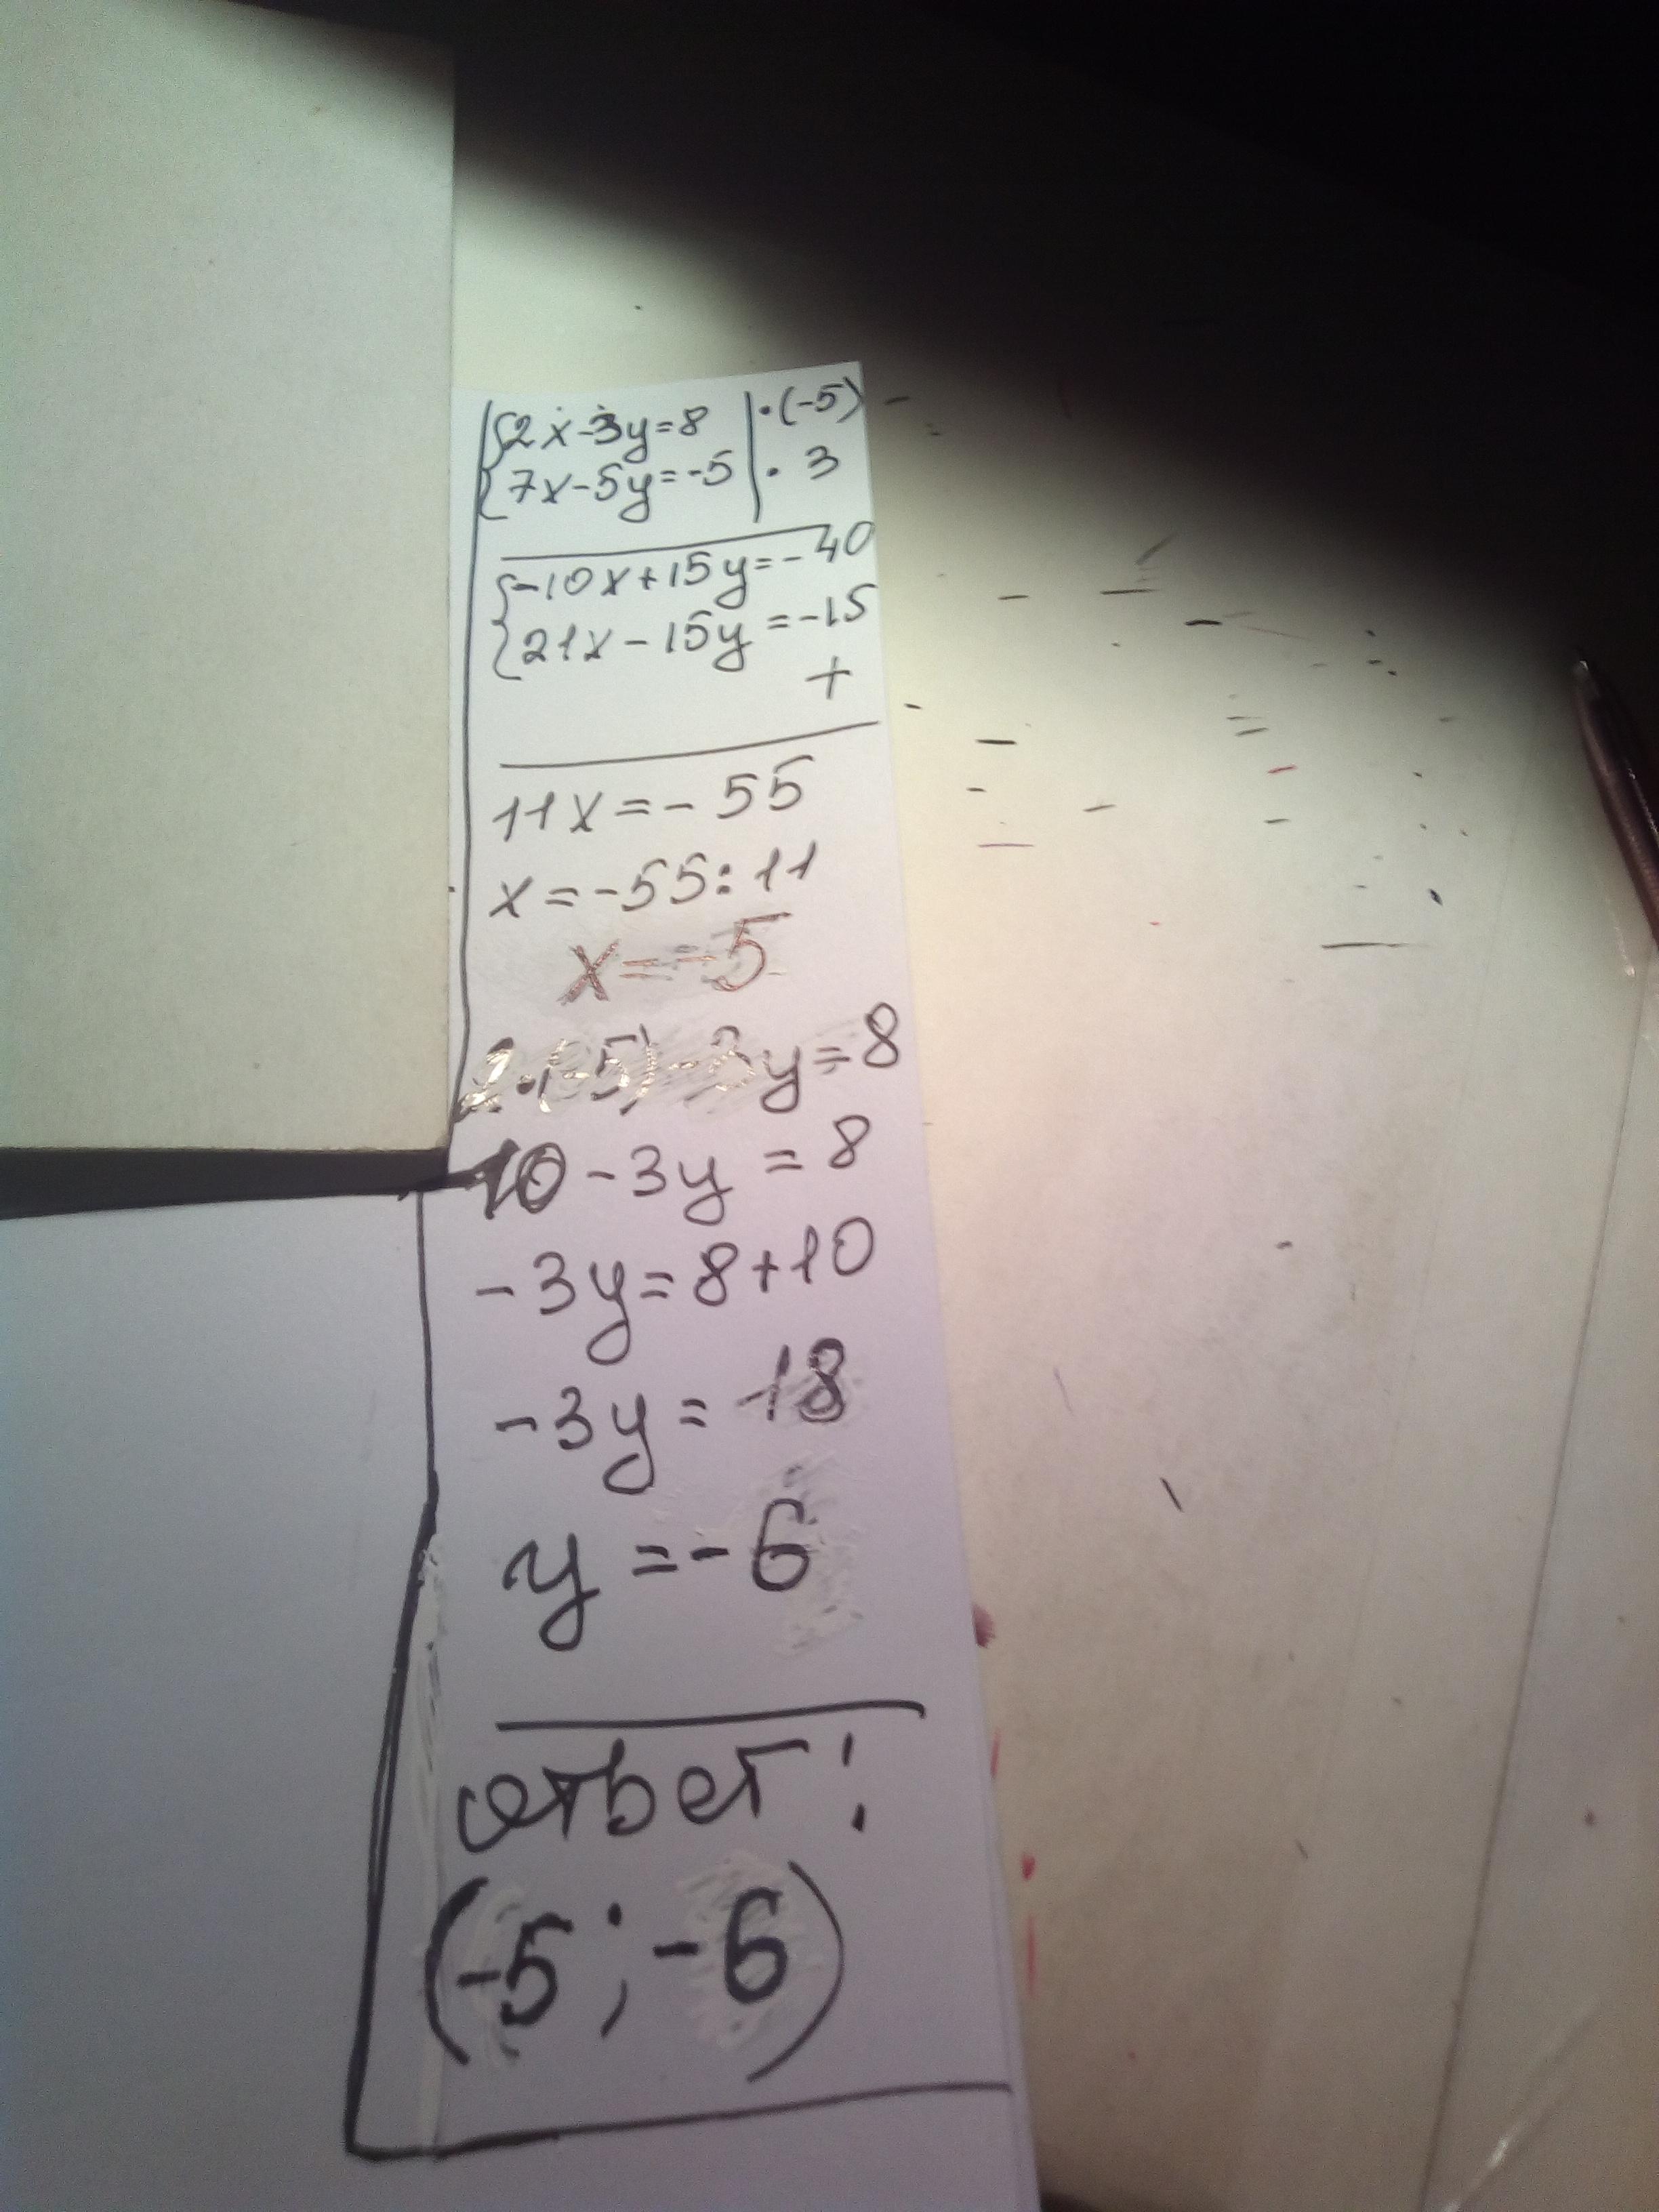 {2x-3y=8 |·(-5)
{7x-5y=-5 |· 3
{-10x+15y=-40
{21x-15y=-15
+
11x=-55
x=-55:11
x=-5
2·(-5)-3y=8
-10-3y=8
-3y=8+10
-3y=18
y=-6
ответ:
(-5;-6)